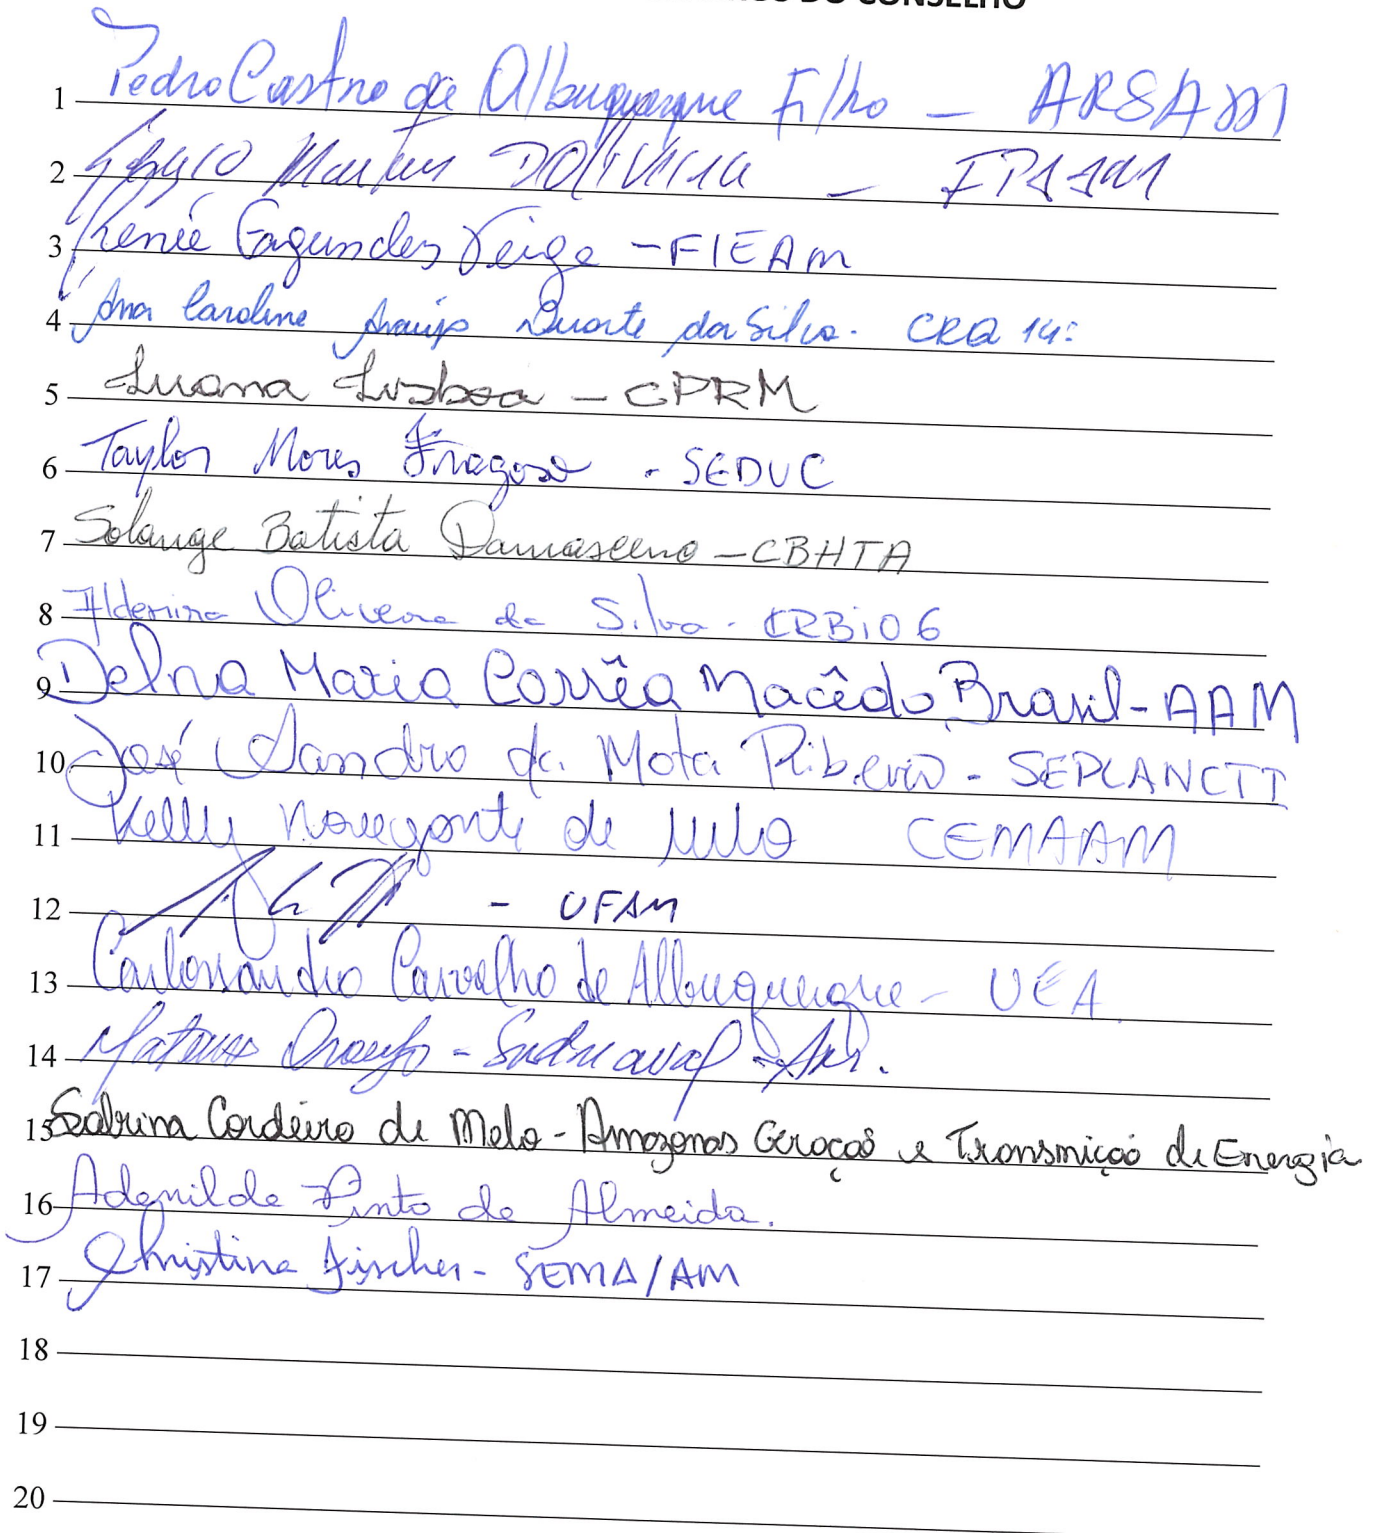 DO CONSELHO
1 Pedro Castro de Albuquerque Filho - ARSAM
2 Sérgio Martins D'Oliveira - IPAAM
3 Renée Fagundes Veiga - FIEAM
4 Ana Caroline Araújo Duarte da Silva. CRQ 14:
5 Luana Lisboa - CPRM
6 Taylon Mores Fragoso - SEDUC
7 Solange Batista Damasceno - CBHTA
8 Aldenira Oliveira da Silva - CRBiO 6
9 Delna Maria Corrêa Macêdo Brasil - AAM
10 José Sandro da Mota Ribeiro - SEPLANCTI
11 Kelly Novegonte de Melo CEMAAM
12 - UFAM
13 Carlossandro Carvalho de Albuquerque - UEA.
14 Mateus Araujo - Sindnaval - Am.
15 Sabrina Cordeiro de Melo - Amazonas Geração e Transmição de Energia
16 Adenilde Pinto de Almeida.
17 Christina Fischer - SEMA/AM
18
19
20